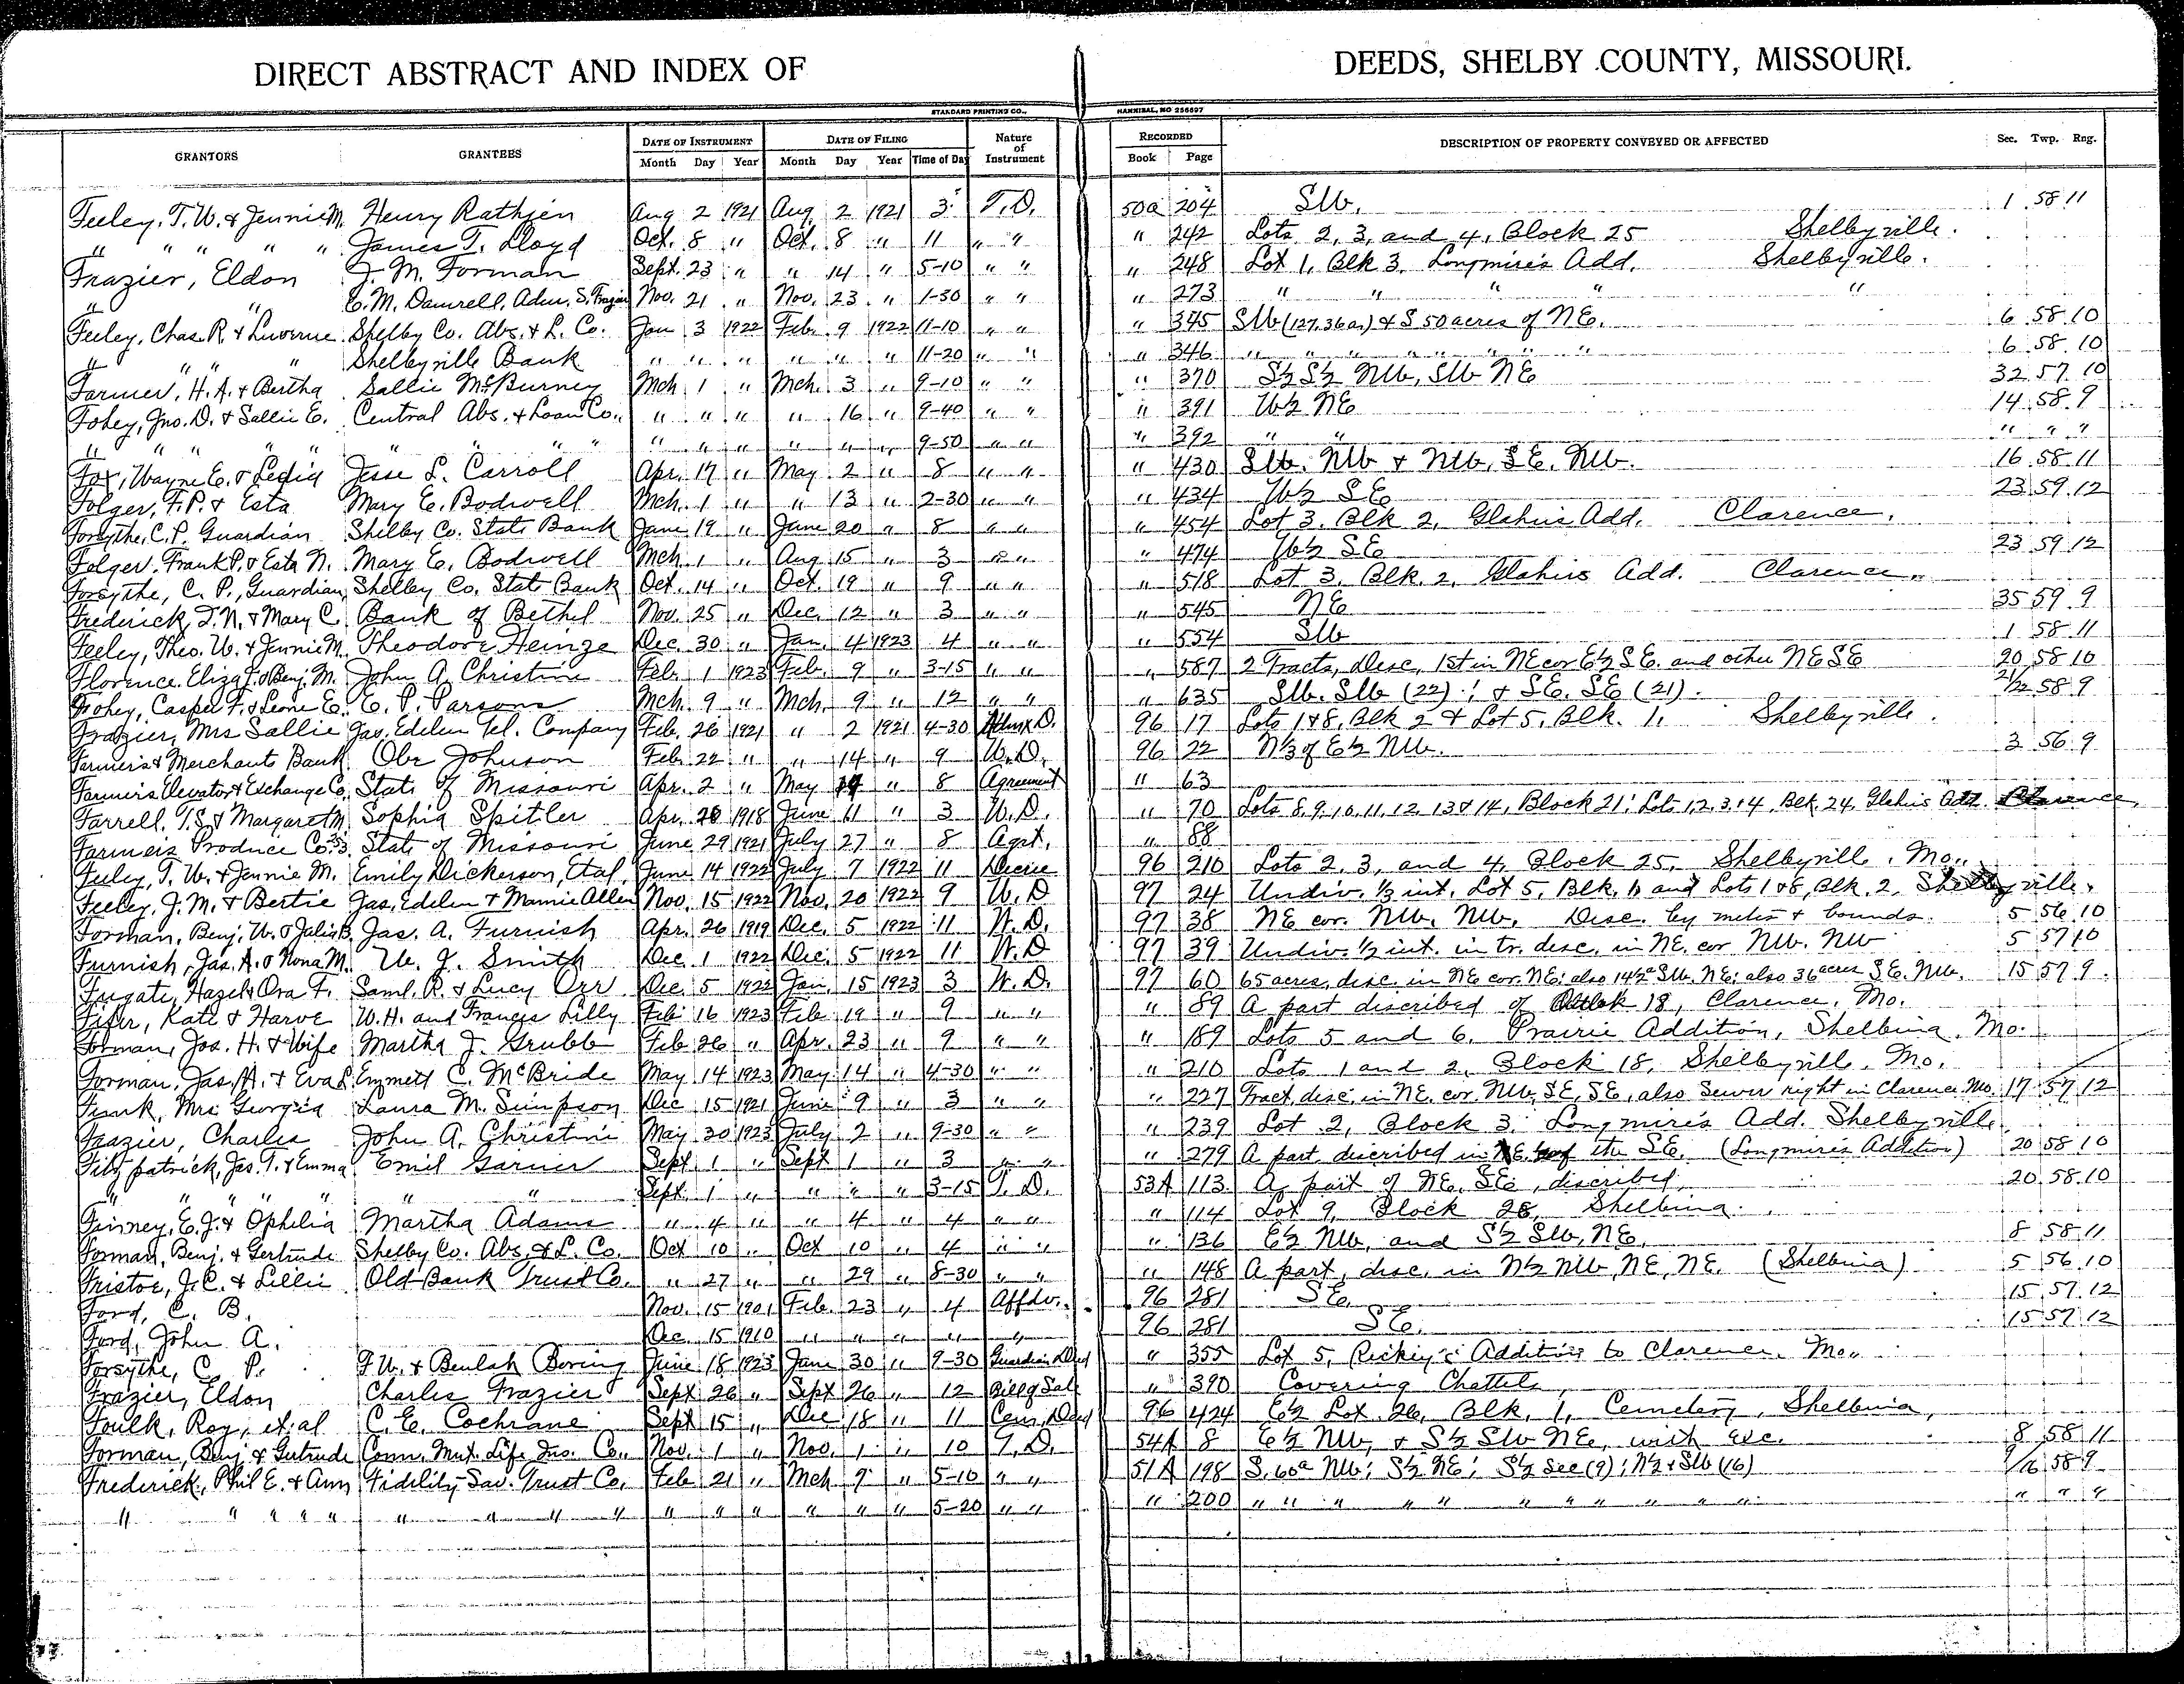 DIRECT ABSTRACT AND INDEX OF DEEDS, SHELBY COUNTY, MISSOURI.
STANDARD PRINTING CO., HANNIBAL, MO 256697
GRANTORS GRANTEES DATE OF INSTRUMENT DATE OF FILING Nature of Instrument RECORDED DESCRIPTION OF PROPERTY CONVEYED OR AFFECTED Sec. Twp. Rng.
Month Day Year Month Day Year Time of Day Book Page
Feeley, T. W. & Jennie M. Henry Rathjen Aug 2 1921 Aug 2 1921 3 T.D. 50a 204 SW. 1 58 11
" " " " " James T. Lloyd Oct. 8 " Oct. 8 " 11 " " " 242 Lots 2, 3, and 4, Block 25 Shelbyville.
Frazier, Eldon J. M. Forman Sept. 23 " " 14 " 5-10 " " " 248 Lot 1, Blk 3, Longmire's Add. Shelbyville.
" " C. M. Damrell, Adm. S. Frazier Nov. 21 " Nov. 23 " 1-30 " " " 273 " " " " "
Feeley, Chas. R. & Luverne Shelby Co. Abs. & L. Co. Jan 3 1922 Feb. 9 1922 11-10 " " " 345 SW (127.36 as) & S 50 acres of NE. 6 58 10
" " " Shelbyville Bank " " " " " " 11-20 " " " 346 " " " " " " " " 6 58 10
Farmer, H. A. & Bertha Sallie McBurney Mch 1 " Mch. 3 " 9-10 " " " 370 S½ S½ NW, SW NE 32 57 10
Fohey, Jno. D. & Sallie E. Central Abs. & Loan Co. " " " " 16 " 9-40 " " " 391 W½ NE 14 58 9
" " " " " " " " " " " " 9-50 " " " 392 " " " " "
Fox, Wayne E. & Ledia Jesse L. Carroll Apr. 17 " May 2 " 8 " " " 430 SW. NW & NW, SE, NW. 16 58 11
Folger, F. P. & Esta Mary E. Bodwell Mch. 1 " " 13 " 2-30 " " " 434 W½ SE 23 59 12
Forsythe, C. P. Guardian Shelby Co. State Bank June 19 " June 20 " 8 " " " 454 Lot 3, Blk 2, Glahn's Add. Clarence.
Folger, Frank P. & Esta N. Mary E. Bodwell Mch. 1 " Aug. 15 " 3 " " " 474 W½ SE 23 59 12
Forsythe, C. P., Guardian, Shelby Co. State Bank Oct. 14 " Oct. 19 " 9 " " " 518 Lot 3, Blk. 2, Glahn's Add. Clarence.
Frederick, T. N. & Mary C. Bank of Bethel Nov. 25 " Dec. 12 " 3 " " " 545 NE 35 59 9
Feeley, Theo. W. & Jennie M. Theodore Heinze Dec. 30 " Jan. 4 1923 4 " " " 554 SW 1 58 11
Florence, Eliza J. & Benj. M. John A. Christine Feb. 1 1923 Feb. 9 " 3-15 " " " 587 2 Tracts, desc. 1st in NE cor E½ SE. and other NE SE 20 58 10
Fohey, Casper F. & Leone E. E. P. Parsons Mch. 9 " Mch. 9 " 12 " " " 635 SW. SW (22).; & SE. SE (21). 21/22 58 9
Frazier, Mrs Sallie Jas. Edelen Tel. Company Feb. 26 1921 " 2 1921 4-30 Admx D. 96 17 Lots 1&8, Blk 2 & Lot 5, Blk. 1, Shelbyville.
Farmers & Merchants Bank Obe Johnson Feb. 22 " " 14 " 9 W.D. 96 22 N⅓ of E½ NW. 3 56 9
Farmers Elevator & Exchange Co. State of Missouri Apr. 2 " May 14 " 8 Agreement " 63
Farrell, T. S. & Margaret M. Sophia Spitler Apr. 28 1918 June 11 " 3 W.D. " 70 Lots 8, 9, 10, 11, 12, 13 & 14, Block 21; Lots 1, 2, 3 & 4, Blk 24, Glahn's Add. Clarence.
Farmers Produce Co. State of Missouri June 29 1921 July 27 " 8 Agrt. " 88
Feeley, T. W. & Jennie M. Emily Dickerson, Etal. June 14 1922 July 7 1922 11 Decree 96 210 Lots 2, 3, and 4, Block 25, Shelbyville, Mo.
Feeley, J. M. & Bertie Jas. Edelen & Mamie Allen Nov. 15 1922 Nov. 20 1922 9 W.D 97 24 Undiv. ⅓ int. Lot 5, Blk. 1, and Lots 1 & 8, Blk. 2, Shelbyville.
Forman, Benj. W. & Julia B. Jas. A. Furnish Apr. 26 1919 Dec. 5 1922 11 W.D. 97 38 NE cor. NW. NW. Desc. by metes & bounds. 5 56 10
Furnish, Jas. A. & Nona M. W. J. Smith Dec. 1 1922 Dec. 5 1922 11 W.D 97 39 Undiv. ½ int. in tr. desc. in NE. cor NW. NW 5 57 10
Fugate, Hazel & Ora F. Saml. R. & Lucy Orr Dec. 5 1922 Jan. 15 1923 3 W.D. 97 60 65 acres, desc. in NE cor. NE; also 14½ᵃ SW. NE; also 36 acres SE. NW. 15 57 9
Fifer, Kate & Harve W. H. and Francis Lilly Feb. 16 1923 Feb 19 " 9 " " " 89 A part described of Outlot 18, Clarence, Mo.
Forman, Jos. H. & Wife Martha J. Grubb Feb 26 " Apr. 23 " 9 " " " 189 Lots 5 and 6, Prairie Addition, Shelbina, Mo.
Forman, Jas. H. & Eva L. Emmett C. McBride May 14 1923 May 14 " 4-30 " " " 210 Lots 1 and 2, Block 18, Shelbyville, Mo.
Funk, Mrs Georgia Laura M. Simpson Dec 15 1921 June 9 " 3 " " " 227 Tract, desc. in NE. cor. NW, SE, SE, also Sewer right in Clarence Mo. 17 57 12
Frazier, Charles John A. Christine May 30 1923 July 2 " 9-30 " " " 239 Lot 2, Block 3, Longmire's Add. Shelbyville.
Fitzpatrick, Jas. T. & Emma Emil Garner Sept 1 " Sept 1 " 3 " " " 279 A part described in NE of the SE. (Longmire's Addition) 20 58 10
" " " " " " " Sept. 1 " " " " 3-15 T.D. 53A 113 A part of NE. SE, described. 20 58 10
Finney, E. J. & Ophelia Martha Adams " 4 " " 4 " 4 " " " 114 Lot 9, Block 28, Shelbina.
Forman, Benj. & Gertrude Shelby Co. Abs. & L. Co. Oct 10 " Oct 10 " 4 " " " 136 E½ NW, and S½ SW, NE. 8 58 11
Fristoe, J. C. & Lillie Old Bank Trust Co. " 27 " " 29 " 8-30 " " " 148 A part, desc. in N½ NW, NE, NE. (Shelbina) 5 56 10
Ford, C. B. Nov. 15 1901 Feb. 23 " 4 Affdv. 96 281 SE. 15 57 12
Ford, John A. Dec. 15 1910 " " " " " 96 281 SE. 15 57 12
Forsythe, C. P. F. W. & Beulah Boring June 18 1923 June 30 " 9-30 Guardian Deed " 355 Lot 5, Rickey's Addition to Clarence, Mo.
Frazier, Eldon Charles Frazier Sept 26 " Sept 26 " 12 Bill of Sale " 390 Covering Chattels
Foulk, Roy, et al C. E. Cochrane Sept 15 " Dec 18 " 11 Cem. Deed 96 424 E½ Lot 26, Blk. 1, Cemetery, Shelbina,
Forman, Benj. & Gertrude Conn. Mut. Life Ins. Co. Nov. 1 " Nov. 1 " 10 T.D. 54A 8 E½ NW, & S½ SW NE, with exc. 8 58 11
Frederick, Phil E. & Ann Fidelity Sav. Trust Co. Feb 21 " Mch 9 " 5-10 " " 51A 198 S. 60ᵃ NW; S½ NE; S½ Sec (9); N½ & SW (16) 9/16 58 9
" " " " " " " " " " " " " " " 5-20 " " " 200 " " " " " " " " " " " " " "